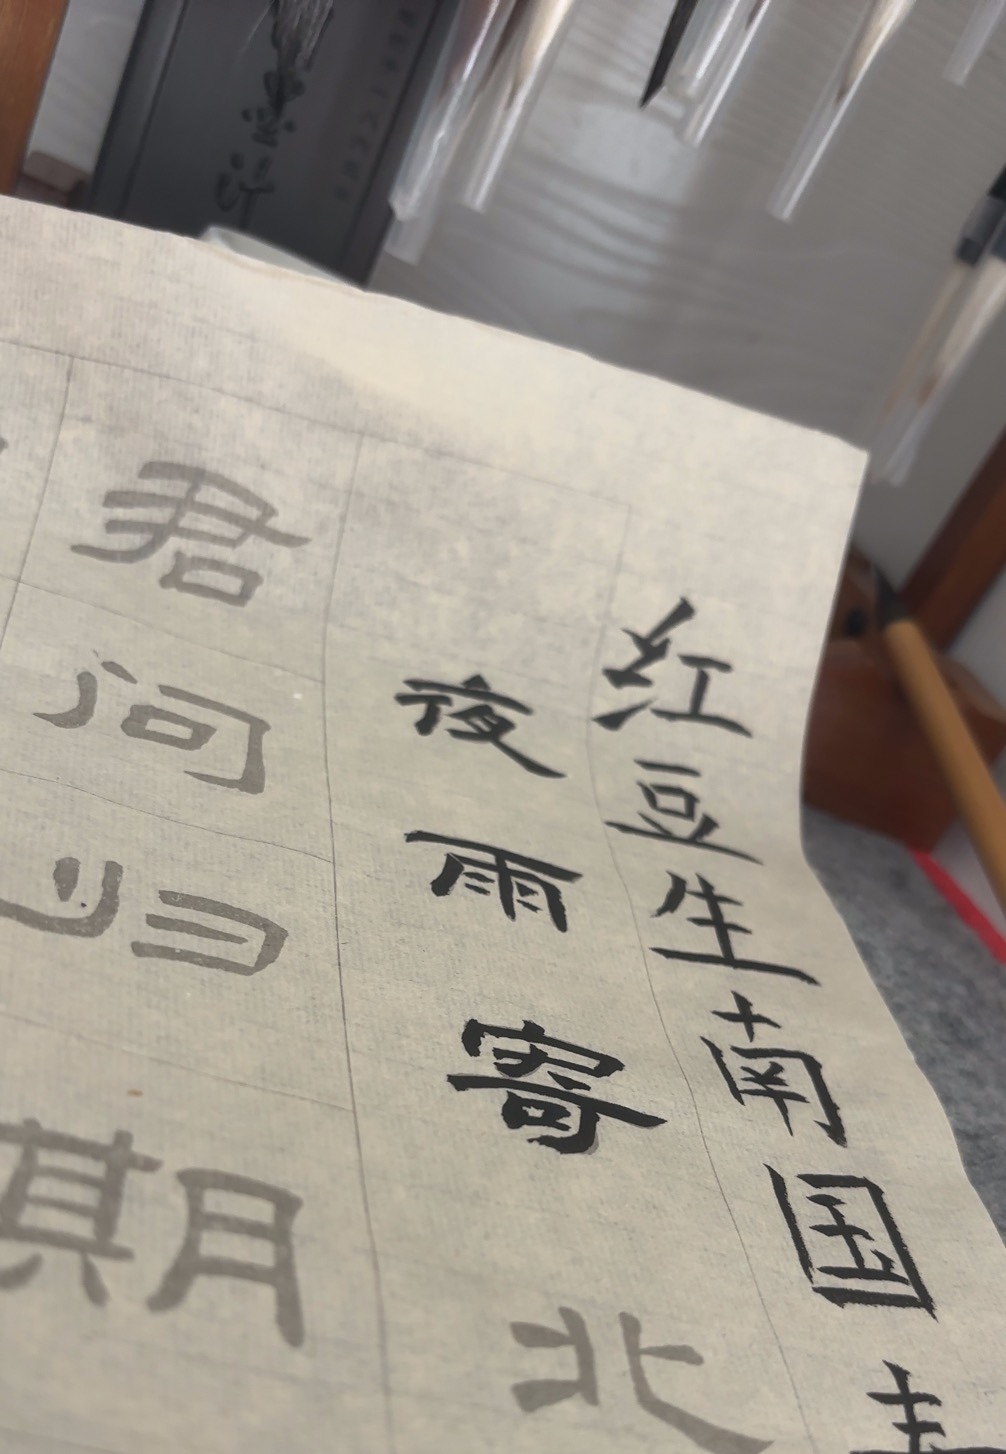 红豆生南国
夜雨寄北
君问归期